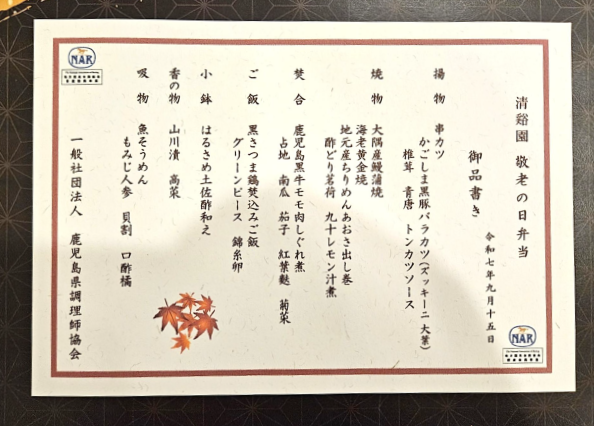 清谿園 敬老の日弁当
御品書き
令和七年九月十五日
揚物 串カツ
かごしま黒豚バラカツ(ズッキーニ 大葉)
椎茸 青唐 トンカツソース
焼物 大隅産鰻蒲焼
海老黄金焼
地元産ちりめんあおさ出し巻
酢どり茗荷 九十レモン汁煮
焚合 鹿児島黒牛モモ肉しぐれ煮
占地 南瓜 茄子 紅葉麩 菊菜
ご飯 黒さつま鶏焚込みご飯
グリーンピース 錦糸卵
小鉢 はるさめ土佐酢和え
香の物 山川漬 高菜
吸物 魚そうめん
もみじ人参 貝割 口酢橘
一般社団法人 鹿児島県調理師協会
NAR
NAR